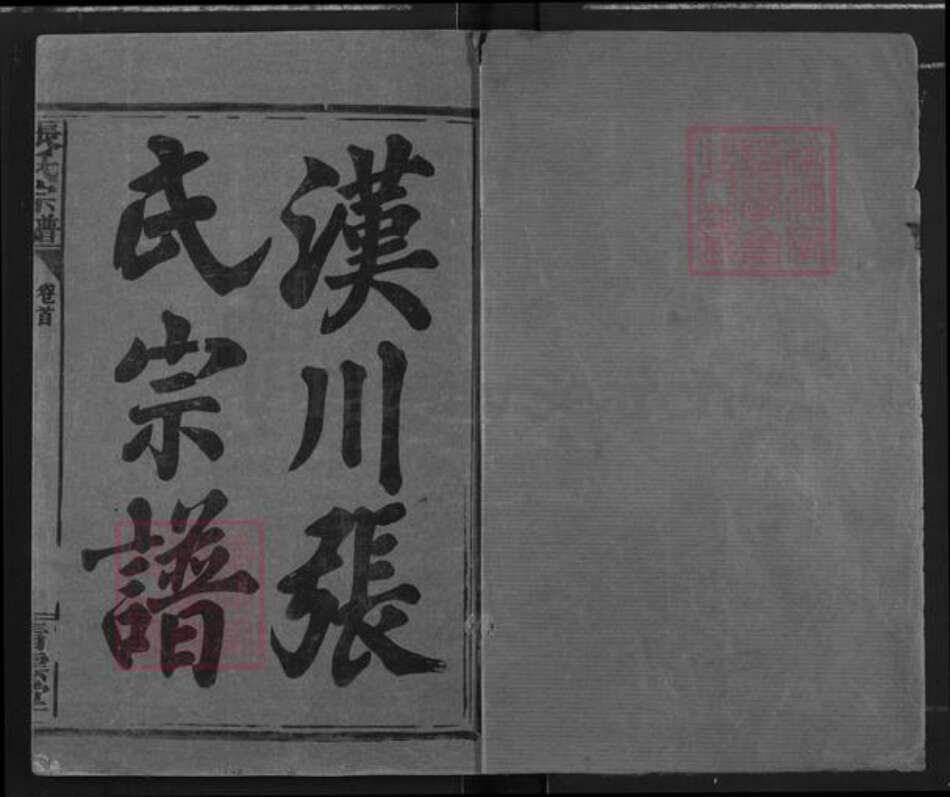 漢川張
氏宗譜
張氏宗譜
卷首